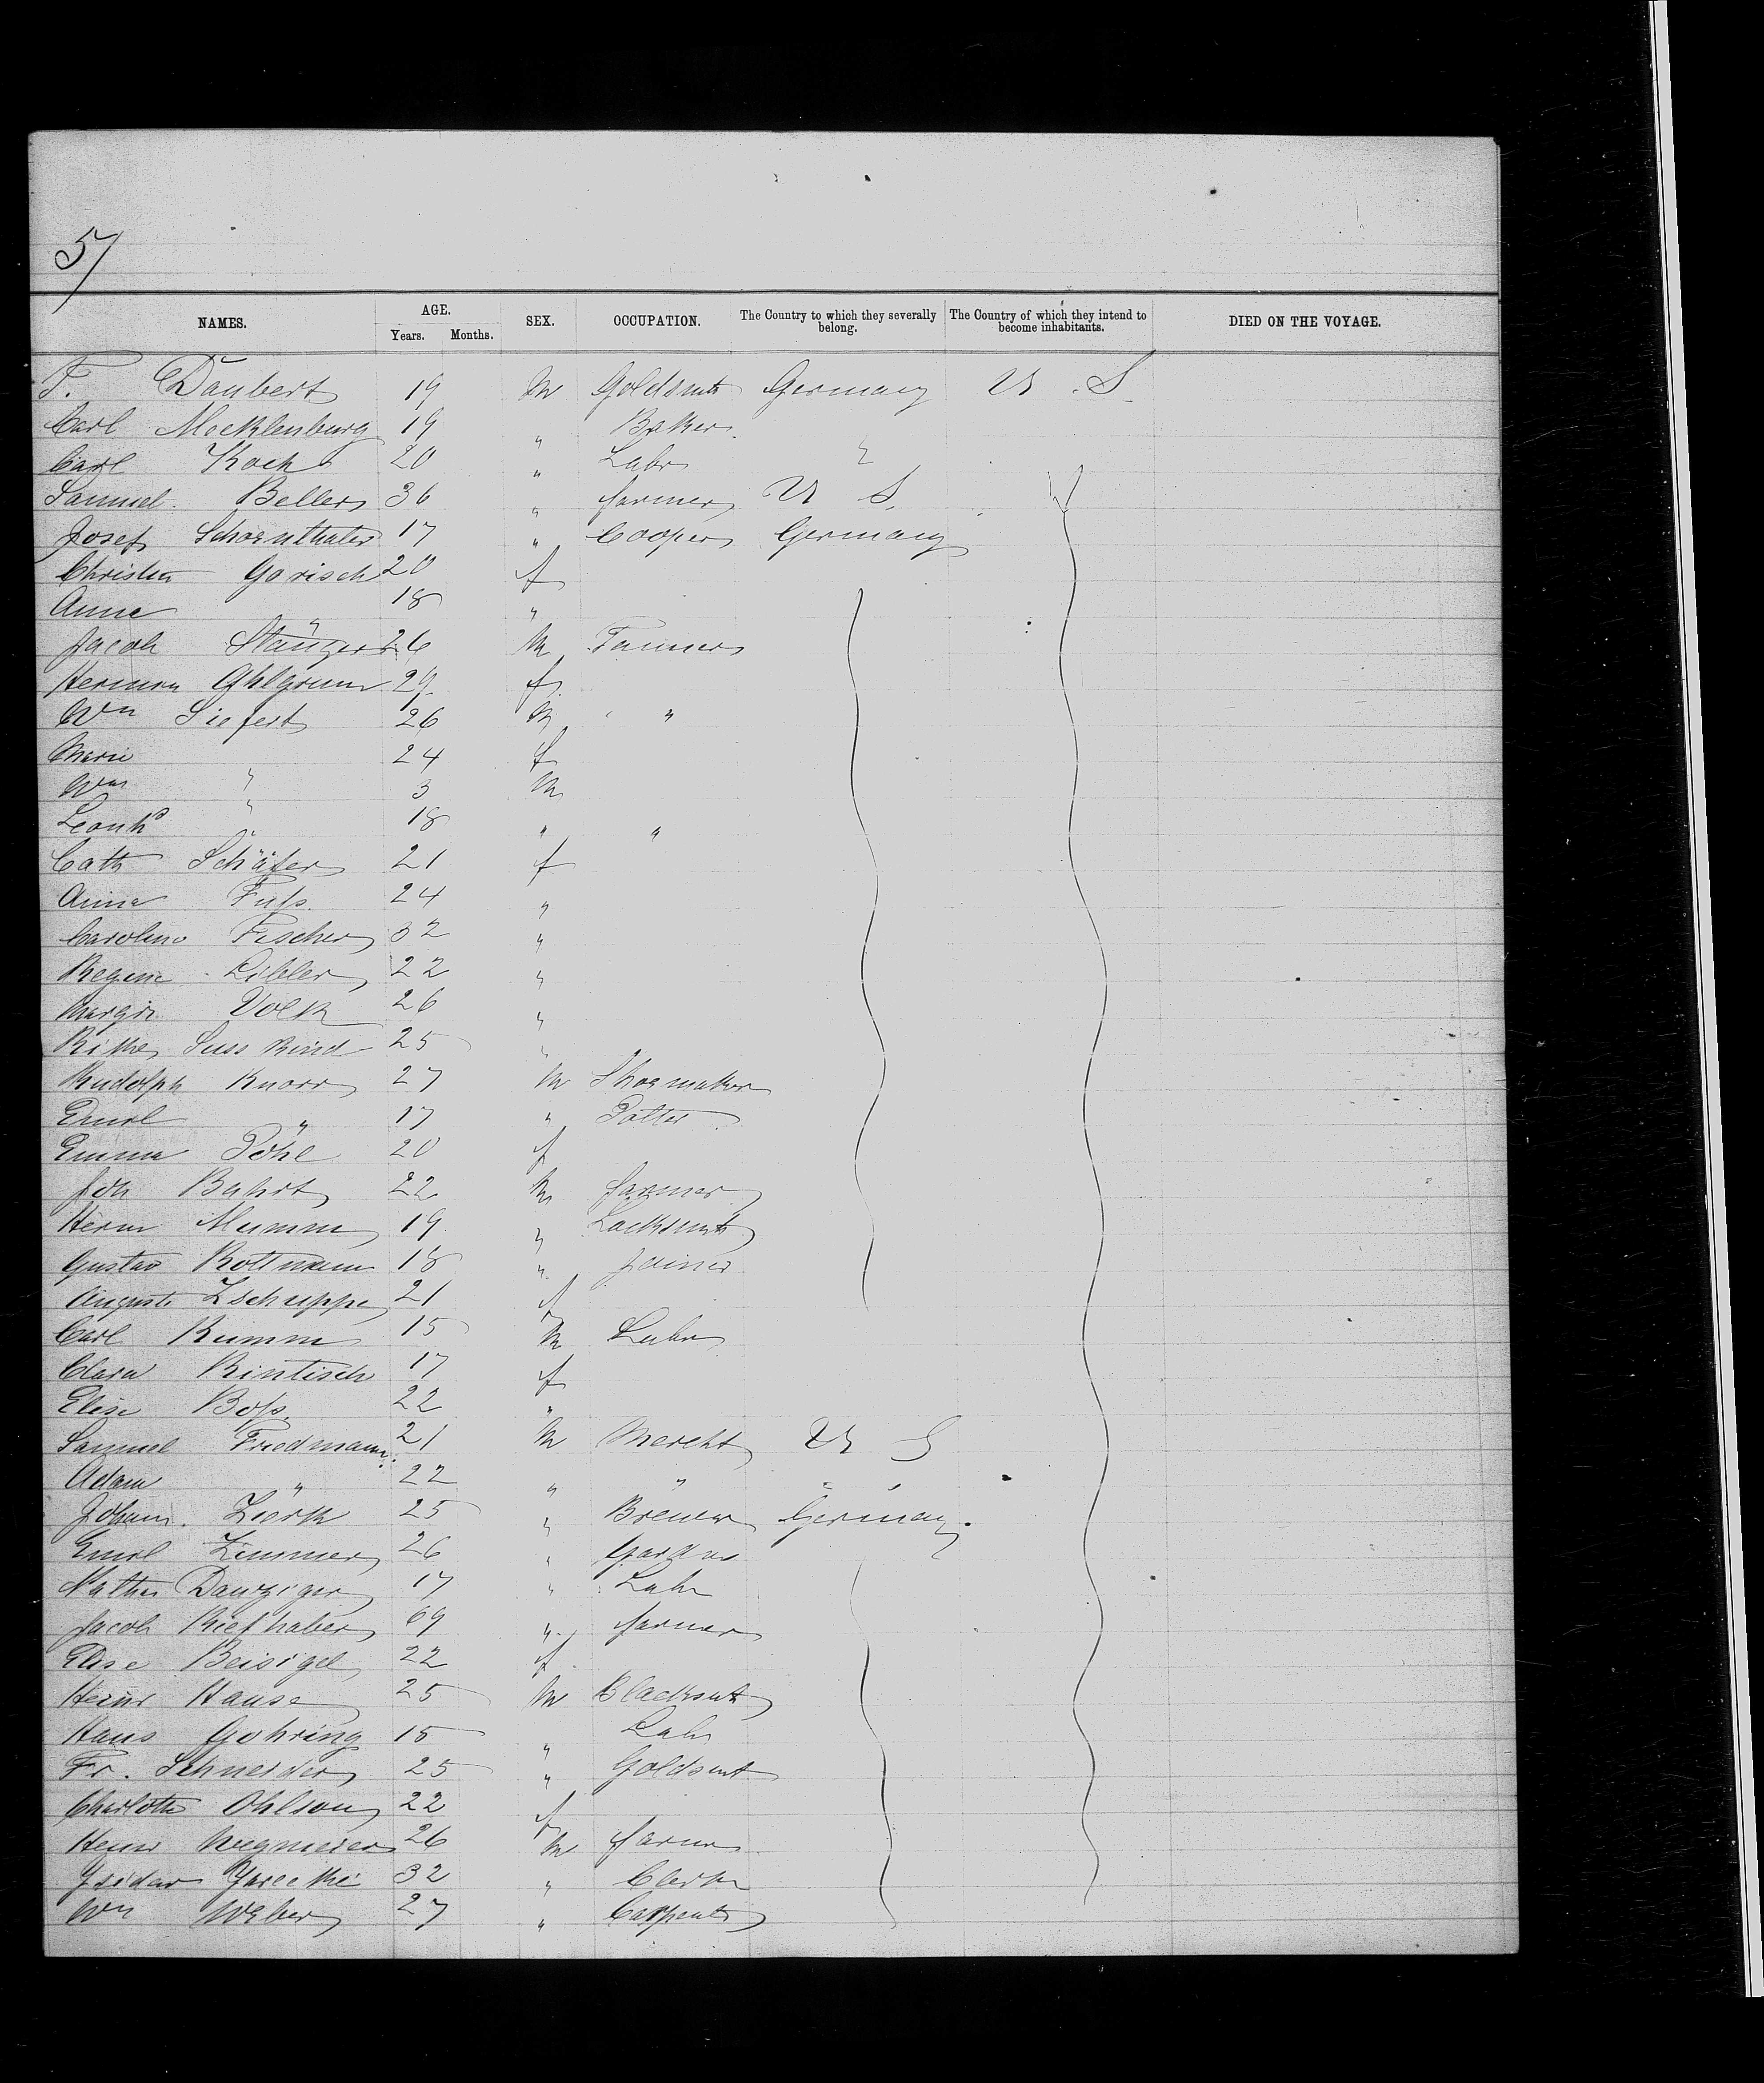 57
NAMES. AGE. Years. Months. SEX. OCCUPATION. The Country to which they severally belong. The Country of which they intend to become inhabitants. DIED ON THE VOYAGE.
F. Daubert 19 M Goldsmt Germany U. S.
Carl Mecklenburg 19 " Baker
Carl Koch 20 " Labr "
Samuel Beller 36 " farmer U S.
Josef Schoenthaler 17 " Cooper Germany
Christia Gorisch 20 f
Anna " 18 "
Jacob Stänger 26 M Farmer
Herman 29 f
Wm Siefert 26 M "
Marie " 24 f
Wm " 3 M
Leonhd " 18 " "
Cath Schäfer 21 f
Anna Fuß 24 "
Caroline Fischer 32 "
Regine Libler 22 "
Margr Volk 26 "
Rike Suss Kind 25 "
Rudolph Knorr 27 M Shoemaker
Emil " 17 " Potter
Emma Pöhl 20 f
Joh Bahrt 22 M farmer
Herm Mumm 19 " Locksmt
Gustav Rottmann 18 " Joiner
Auguste Zschuppe 21 f
Carl Kumm 15 M Labr
Clara Rintisch 17 f
Elise Boß 22 "
Samuel Friedmann 21 M Mercht U S
Adam " 22 " " " "
Johann Zierk 25 " Brewer Germany
Emil Zimmer 26 " Gardnr
Nathn Danziger 17 " Labr
Jacob Riefhaber 69 " farmer
Elise Beisigel 22 f
Heinr Hause 25 M Blacksmt
Hans Gohring 15 " Labr
Fr. Schneider 25 " Goldsmt
Charlotte Ohlson 22 f
Heinr Wegmeier 26 M farmr
Isidor 32 " Clerk
Wm Weber 27 " Carpentr